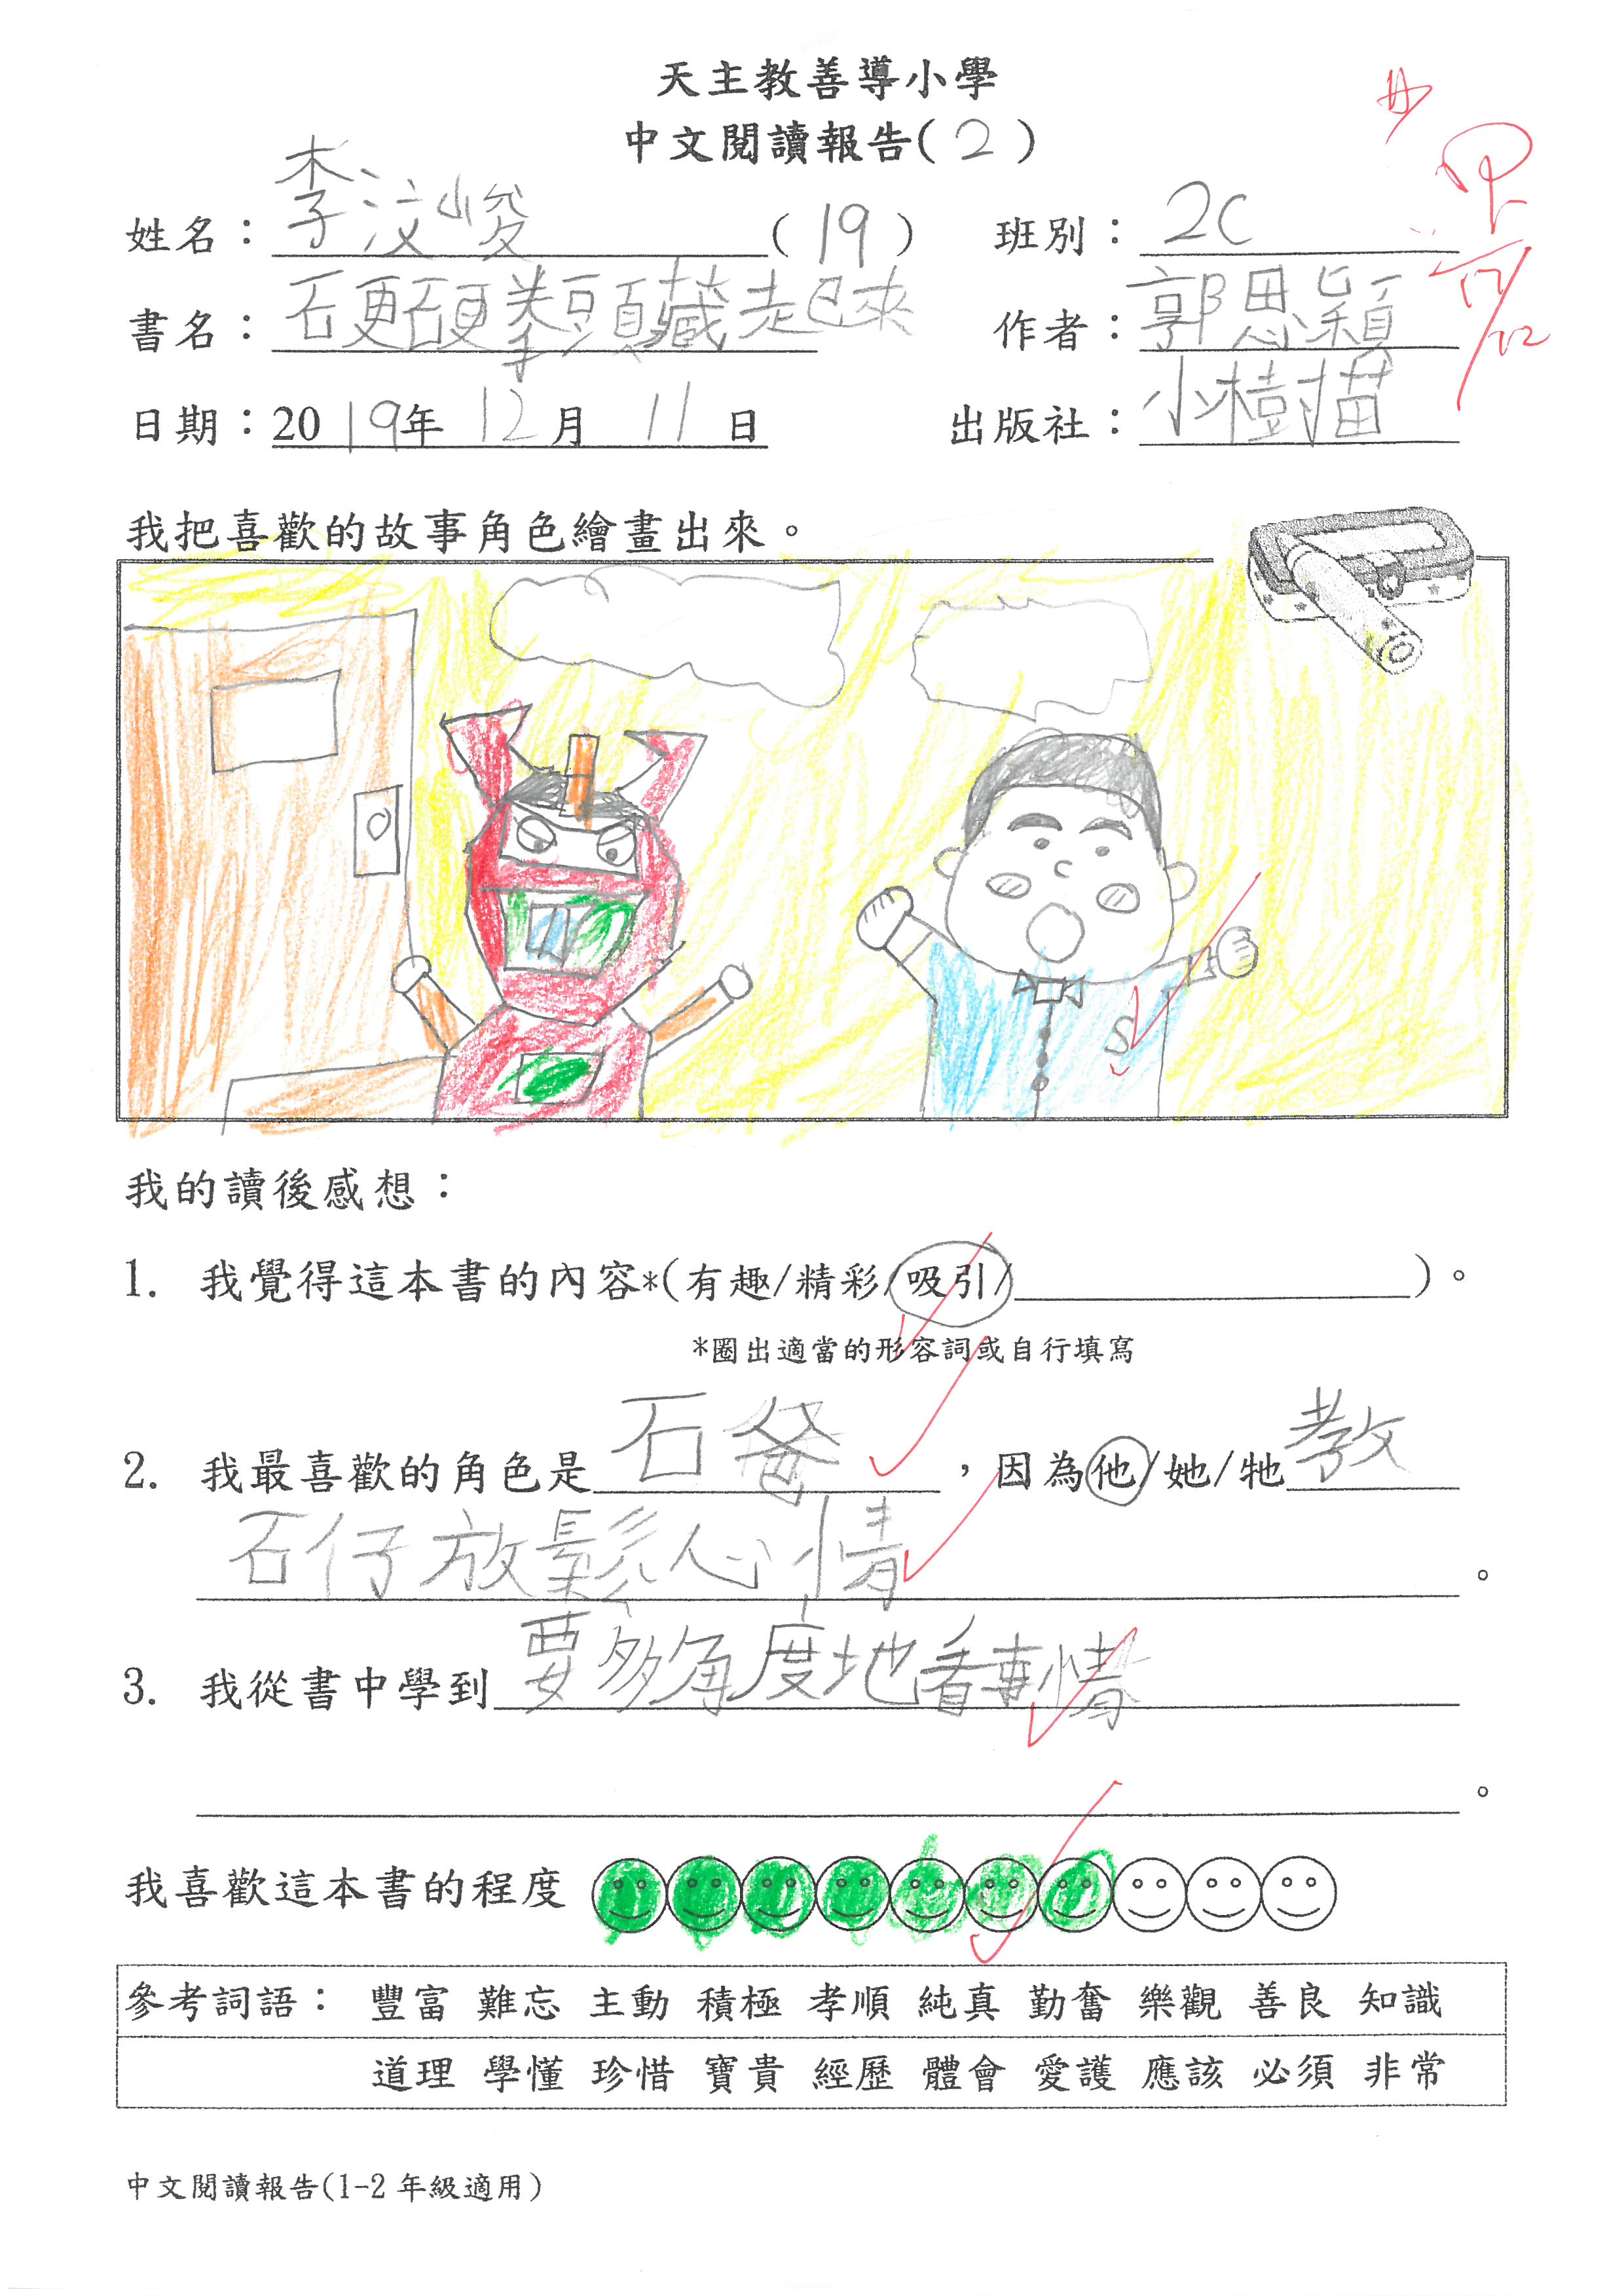 天主教善導小學
中文閱讀報告(2)
姓名：李汶峻(19) 班別：2C
書名：硬硬拳頭藏起來 作者：郭思穎
日期：2019年12月11日 出版社：小樹苗
我把喜歡的故事角色繪畫出來。
S
我的讀後感想：
1. 我覺得這本書的內容*(有趣/精彩/吸引/)。
*圈出適當的形容詞或自行填寫
2. 我最喜歡的角色是石爸，因為他/她/牠教
石仔放鬆心情。
3. 我從書中學到要多角度地看事情
。
我喜歡這本書的程度
參考詞語： 豐富 難忘 主動 積極 孝順 純真 勤奮 樂觀 善良 知識
道理 學懂 珍惜 寶貴 經歷 體會 愛護 應該 必須 非常
中文閱讀報告(1-2年級適用)